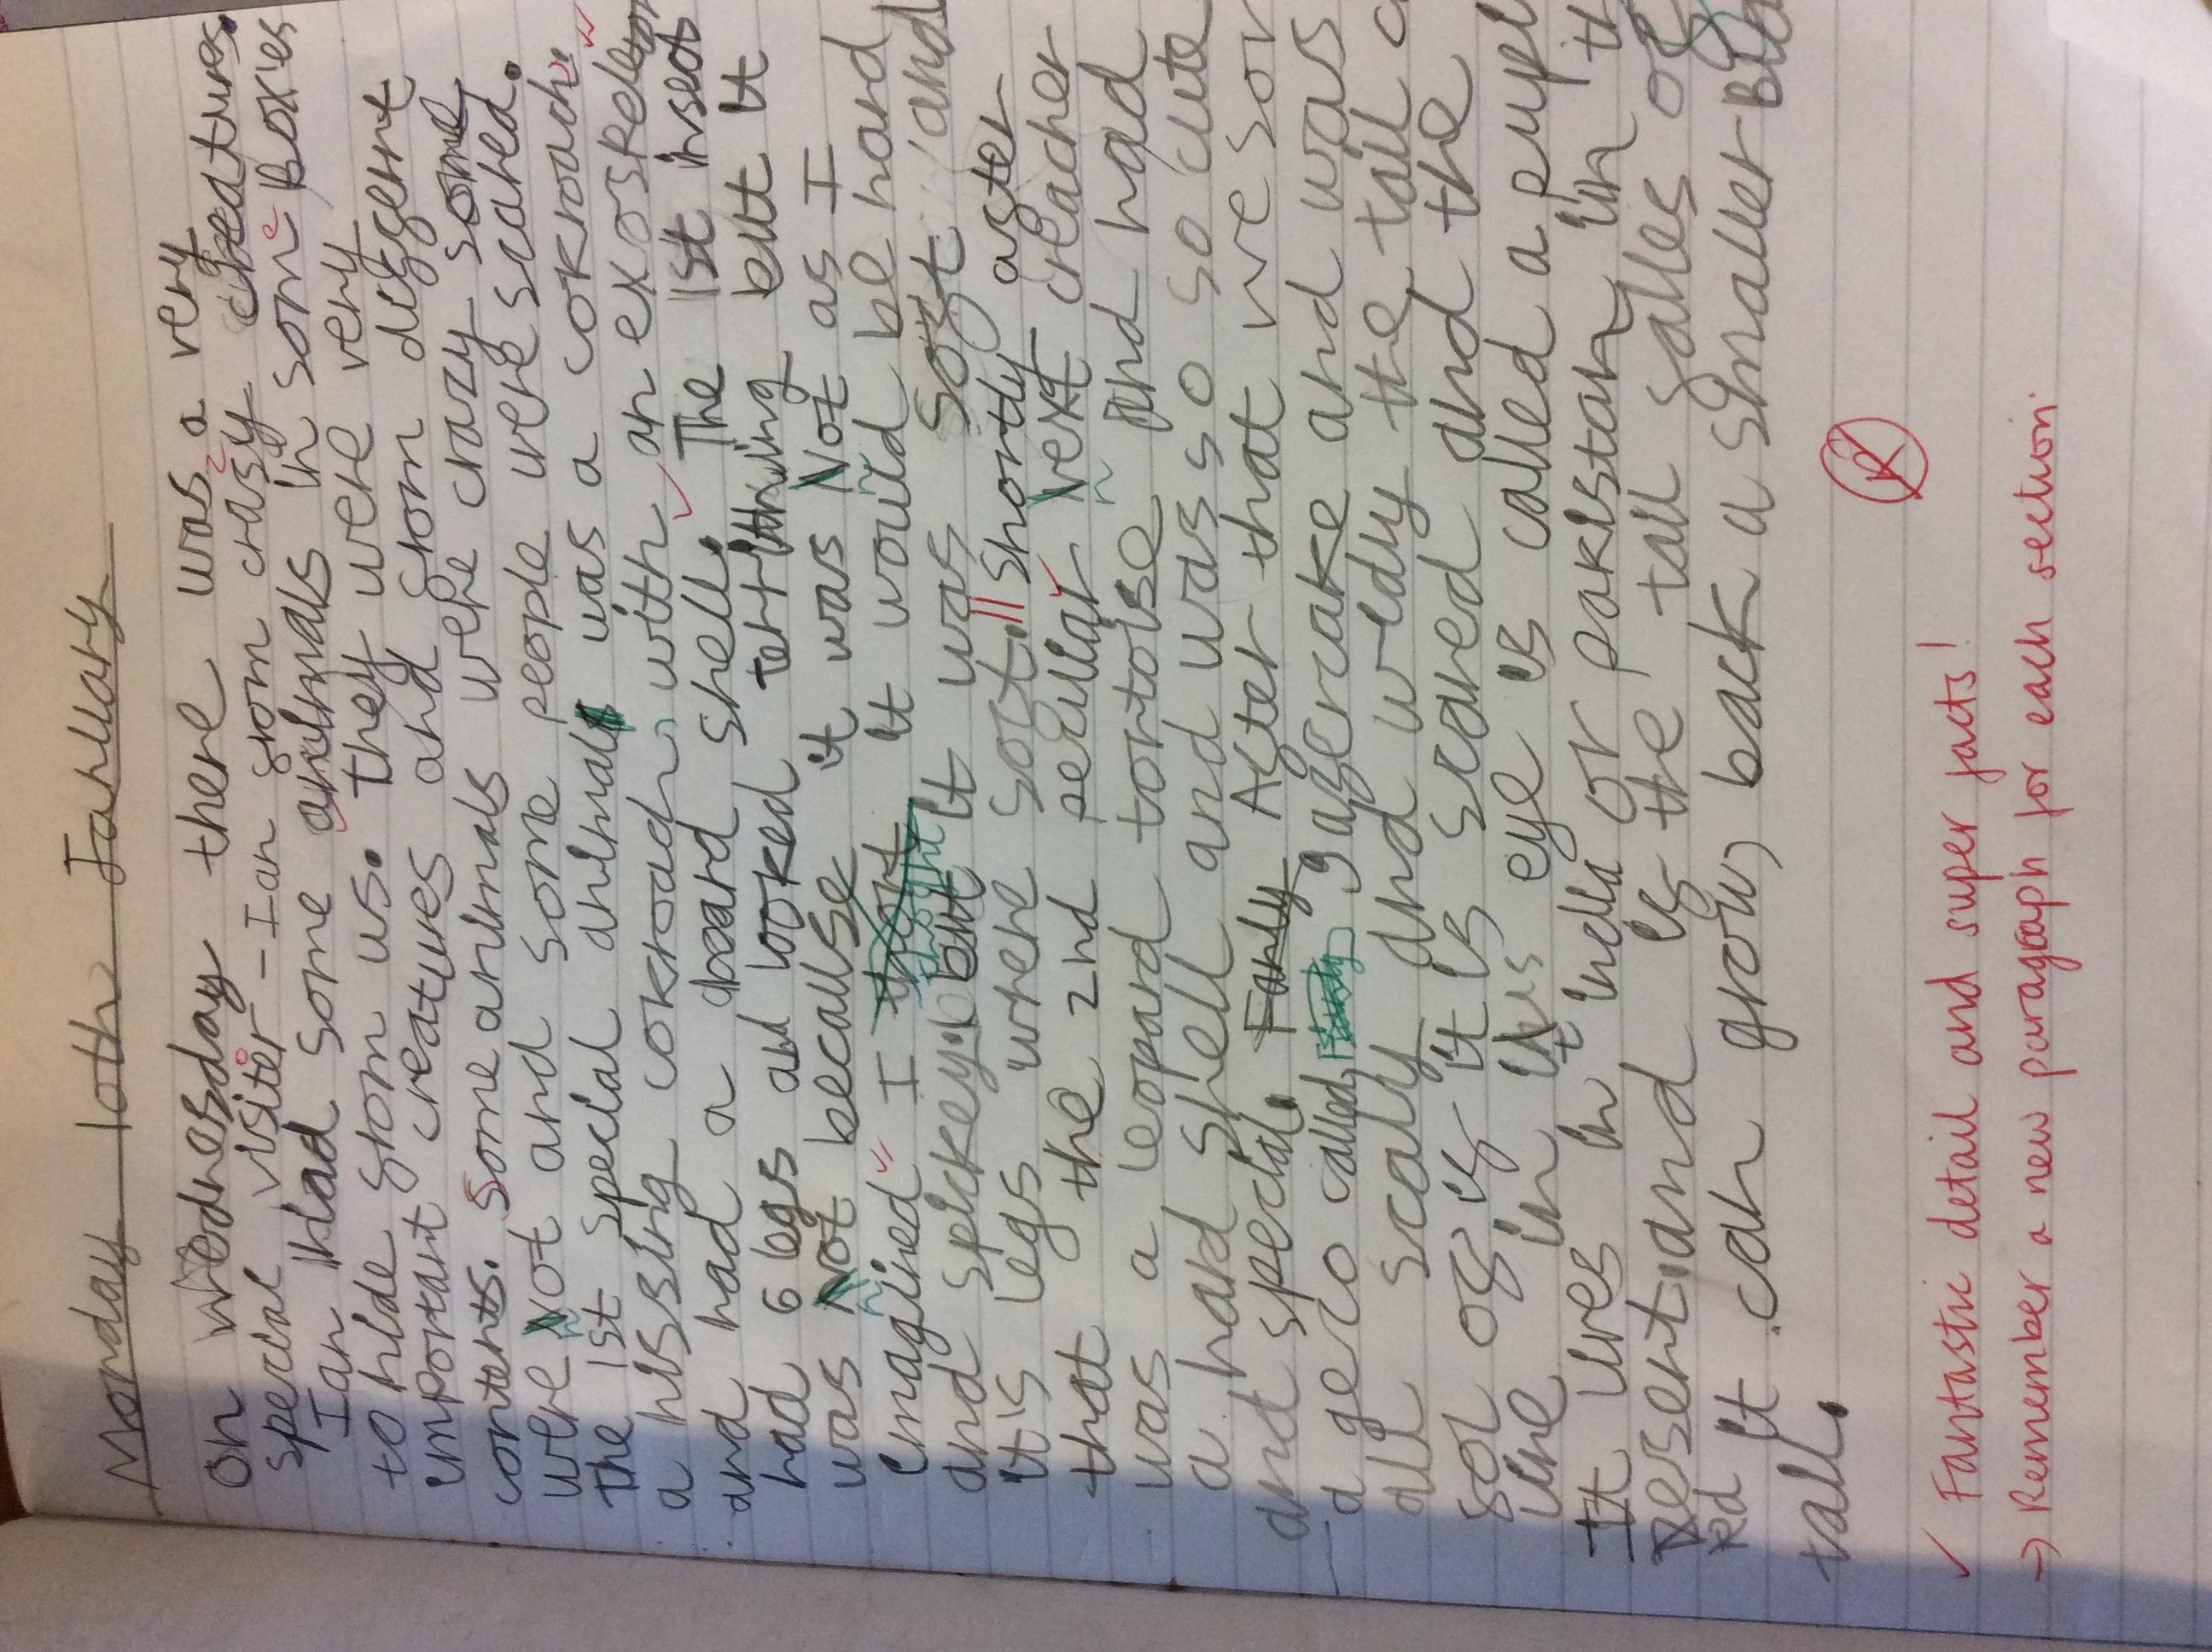 Monday 10th January
On Wednesday there was a very
special visiter - Ian from crasy creatures.
Ian had some animals in some Boxies
to hide from us. they were very
important creatures and from diffrent
contents. Some animals were crazy some
were not and some people were scared.
The 1st special animal was a cokroach.
a hissing cokroach, with an exoskeleton
and had a hard shell. The 1st insect
had 6 legs and looked terrifthing but it
was not because it was not as I
imagined I thought it would be hard
and spickey but it was soft and
it is legs where soft. // Shortly after
that the 2nd peculiar next creacher
was a leopard tortoise and had
a hard shell and was so so so cute
and special. After that we sor
a geco called gagercake and was
all scaly and wedy the tail
fol of if it is scared and the
line in its eye is called a pupl
It lives in india or pakistan in th
Desert and if the tail falles of
it can grow back a smaller
tall.
✓ Fantastic detail and super facts!
→ Remember a new paragraph for each section.